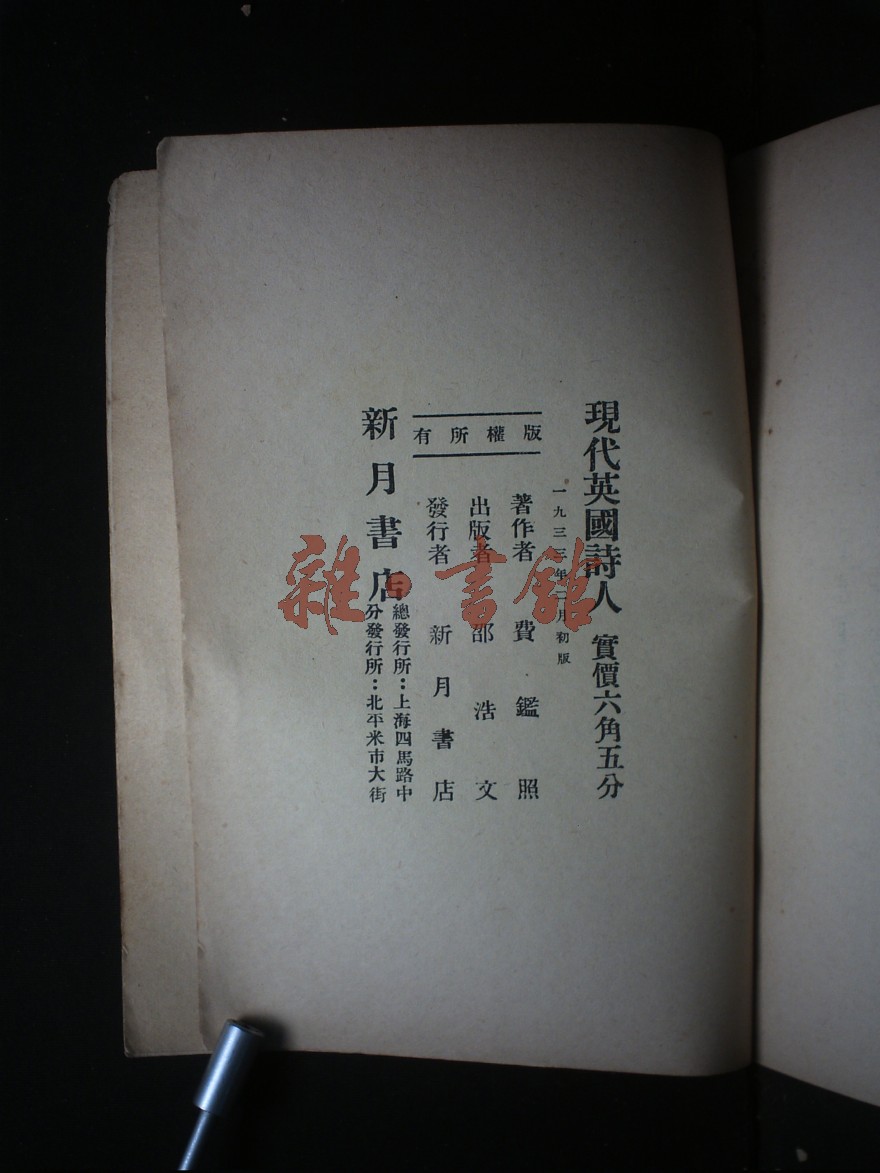 現代英國詩人 實價六角五分
一九三三年二月初版
版權所有
著作者 費鑑照
出版者 邵浩文
發行者 新月書店
新月書店
總發行所：上海四馬路中
分發行所：北平米市大街
雜·書館